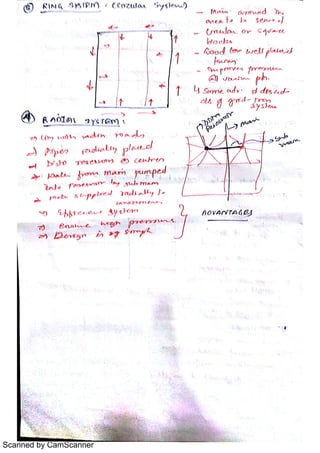 ③ RING SYSTEM: (Circular System)
- Main around the
area to be served
- Circular or square
blocks
- Good for well planned
towns
- Improves pressure
@ various pts.
↳ Same adv. & disad-
of grid-iron
system
④ RADIAL SYSTEM:
→ City with radial roads
→ Pipes radially placed
→ Dist. reservoir @ centres
→ Water from main pumped
into reservoir by submain
→ Water supplied radially to
→ Efficient system
→ Ensure high pressure
→ Design is simple
ADVANTAGES
Distn
reservoir
→ main
→ sub
main
Scanned by CamScanner